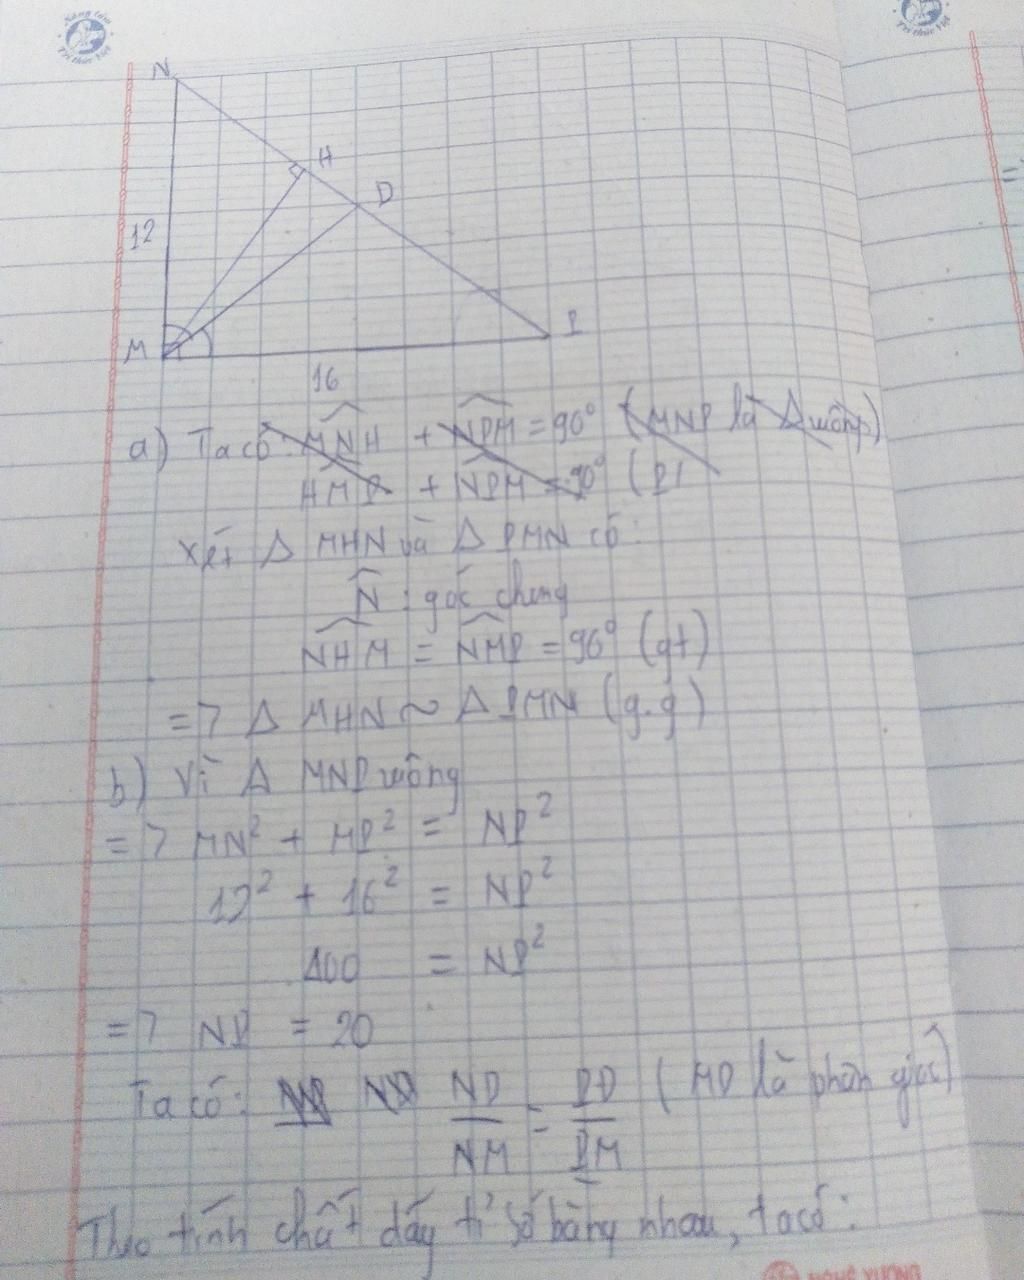 Nâng tầm
Tri thức Việt
Tri thức Việt
N
H
D
12
M
P
16
a) Ta có: MNH + NPM = 90° (MNP là Δ vuông)
HMP + NPM = 90° (Pl
Xét Δ MHN và Δ PMN có:
N : góc chung
NHM = NMP = 90° (gt)
=> Δ MHN ~ Δ PMN (g.g)
b) Vì Δ MNP vuông
=> MN² + MP² = NP²
12² + 16² = NP²
400 = NP²
=> NP = 20
Ta có: ND/NM = PD/PM (MD là phân giác)
Theo tính chất dãy tỉ số bằng nhau, ta có: